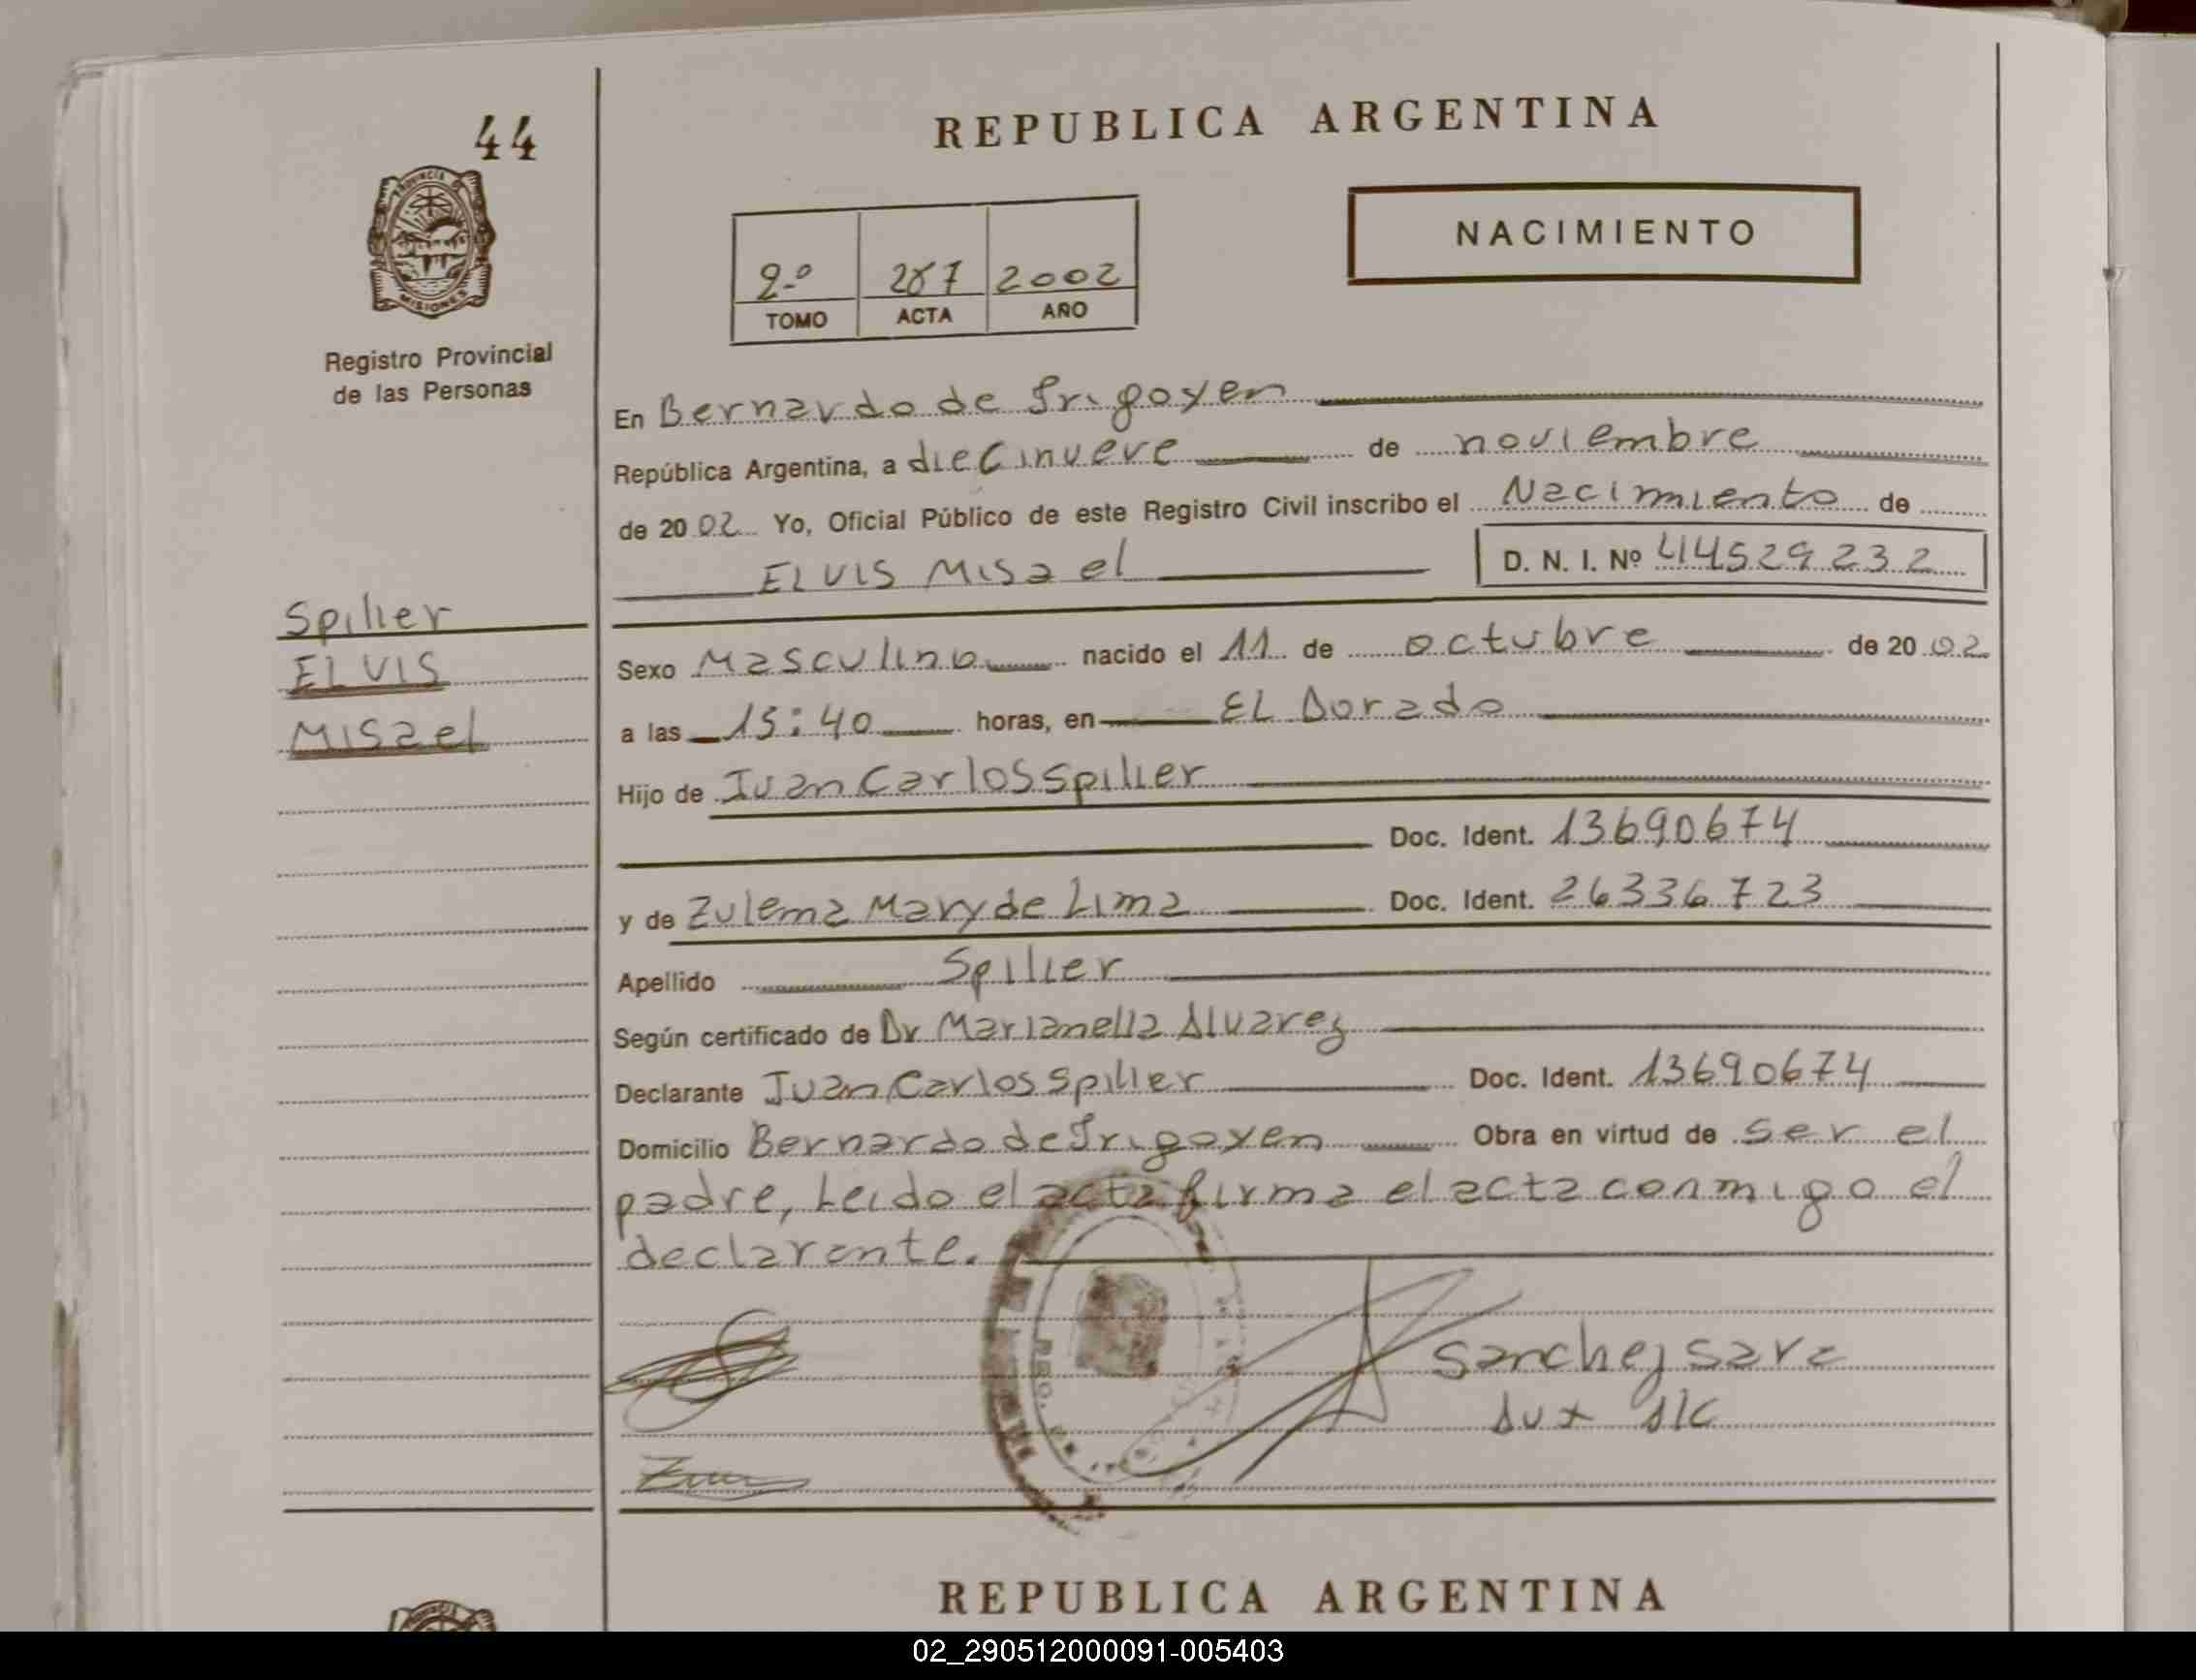 44
REPUBLICA ARGENTINA
NACIMIENTO
2º 287 2002
TOMO ACTA AÑO
Registro Provincial
de las Personas
En Bernardo de Irigoyen
República Argentina, a diecinueve de noviembre
de 2002 Yo, Oficial Público de este Registro Civil inscribo el Nacimiento de
ELVIS Misael D. N. I. Nº 44529232
Spiller
ELVIS
Misael
Sexo Masculino nacido el 11 de octubre de 2002
a las 15:40 horas, en EL Dorado
Hijo de Juan Carlos Spiller
Doc. Ident. 13690674
y de Zulema Mary de Lima Doc. Ident. 26336723
Apellido Spiller
Según certificado de Dr Marianella Alvarez
Declarante Juan Carlos Spiller Doc. Ident. 13690674
Domicilio Bernardo de Irigoyen Obra en virtud de ser el
padre, Leido el acta firma el acta conmigo el
declarante.
Sanchez Sara
Aux A/C
REPUBLICA ARGENTINA
02_290512000091-005403